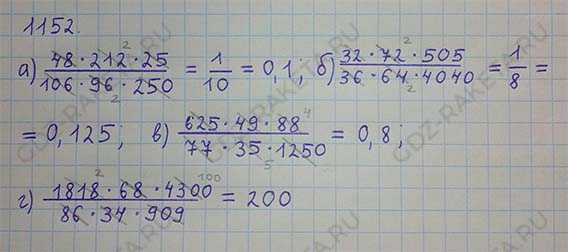 1152.
а) 48·212·25 / 106·96·250 = 1/10 = 0,1; б) 32·72·505 / 36·64·4040 = 1/8 =
= 0,125; в) 625·49·88 / 77·35·1250 = 0,8;
г) 1818·68·4300 / 86·34·909 = 200